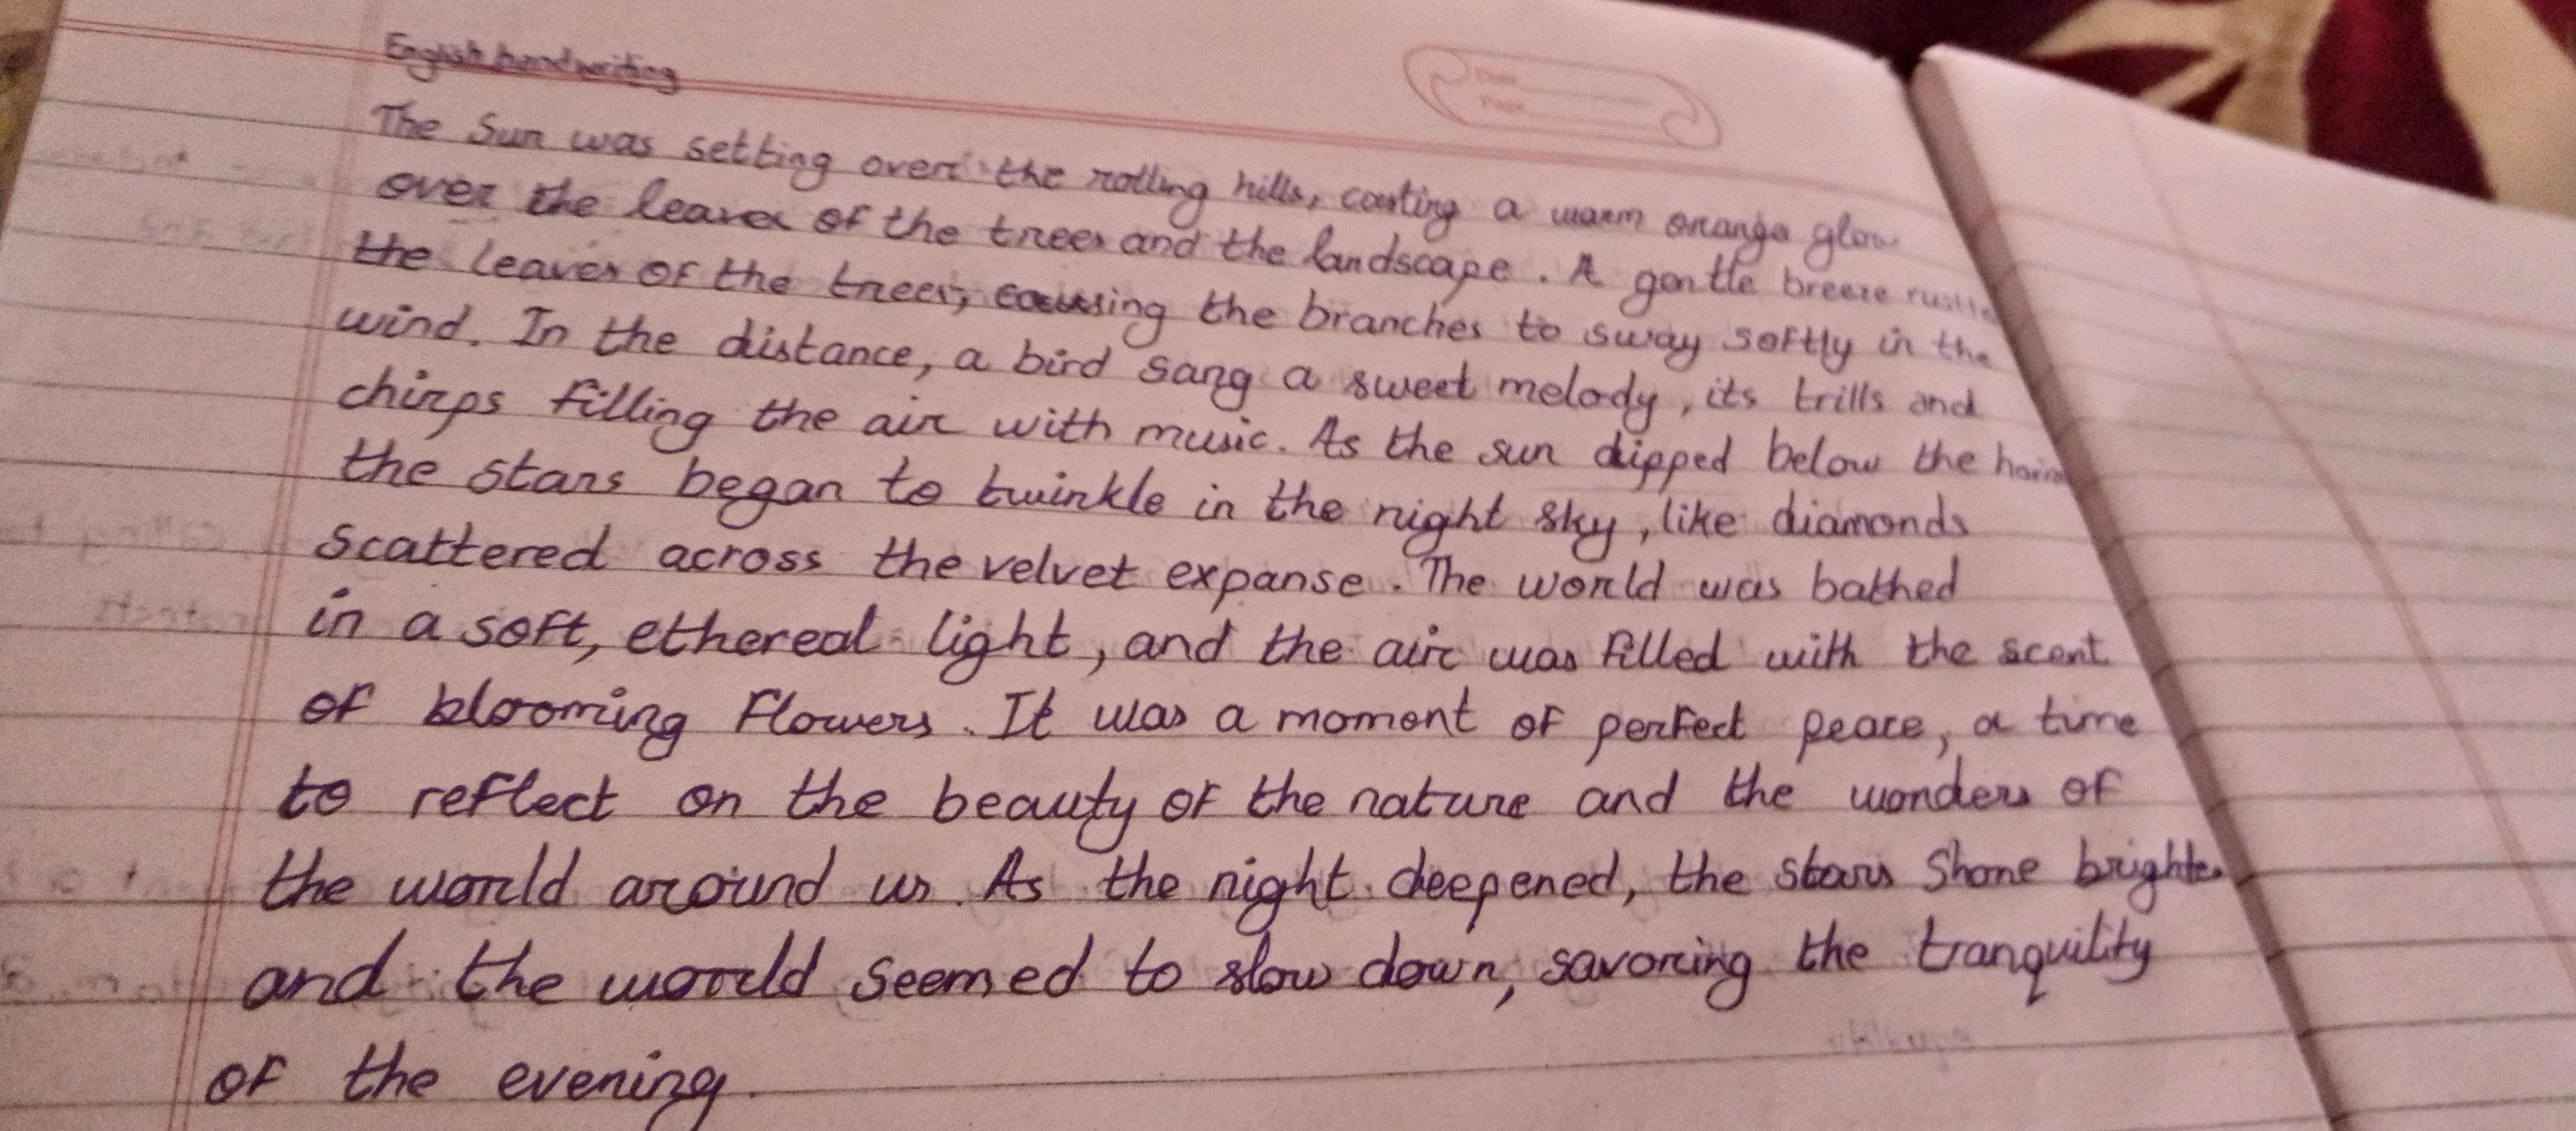 English handwriting
Date
Page
The Sun was setting over the rolling hills, casting a warm orange glow
over the leaves of the trees and the landscape. A gentle breeze
the leaves of the trees, causing the branches to sway softly in the
wind. In the distance, a bird sang a sweet melody, its trills and
chirps filling the air with music. As the sun dipped below the
the stars began to twinkle in the night sky, like diamonds
scattered across the velvet expanse. The world was bathed
in a soft, ethereal light, and the air was filled with the scent
of blooming flowers. It was a moment of perfect peace, a time
to reflect on the beauty of the nature and the wonders of
the world around us. As the night deepened, the stars Shone brighter
and the world seemed to slow down, savoring the tranquility
of the evening.